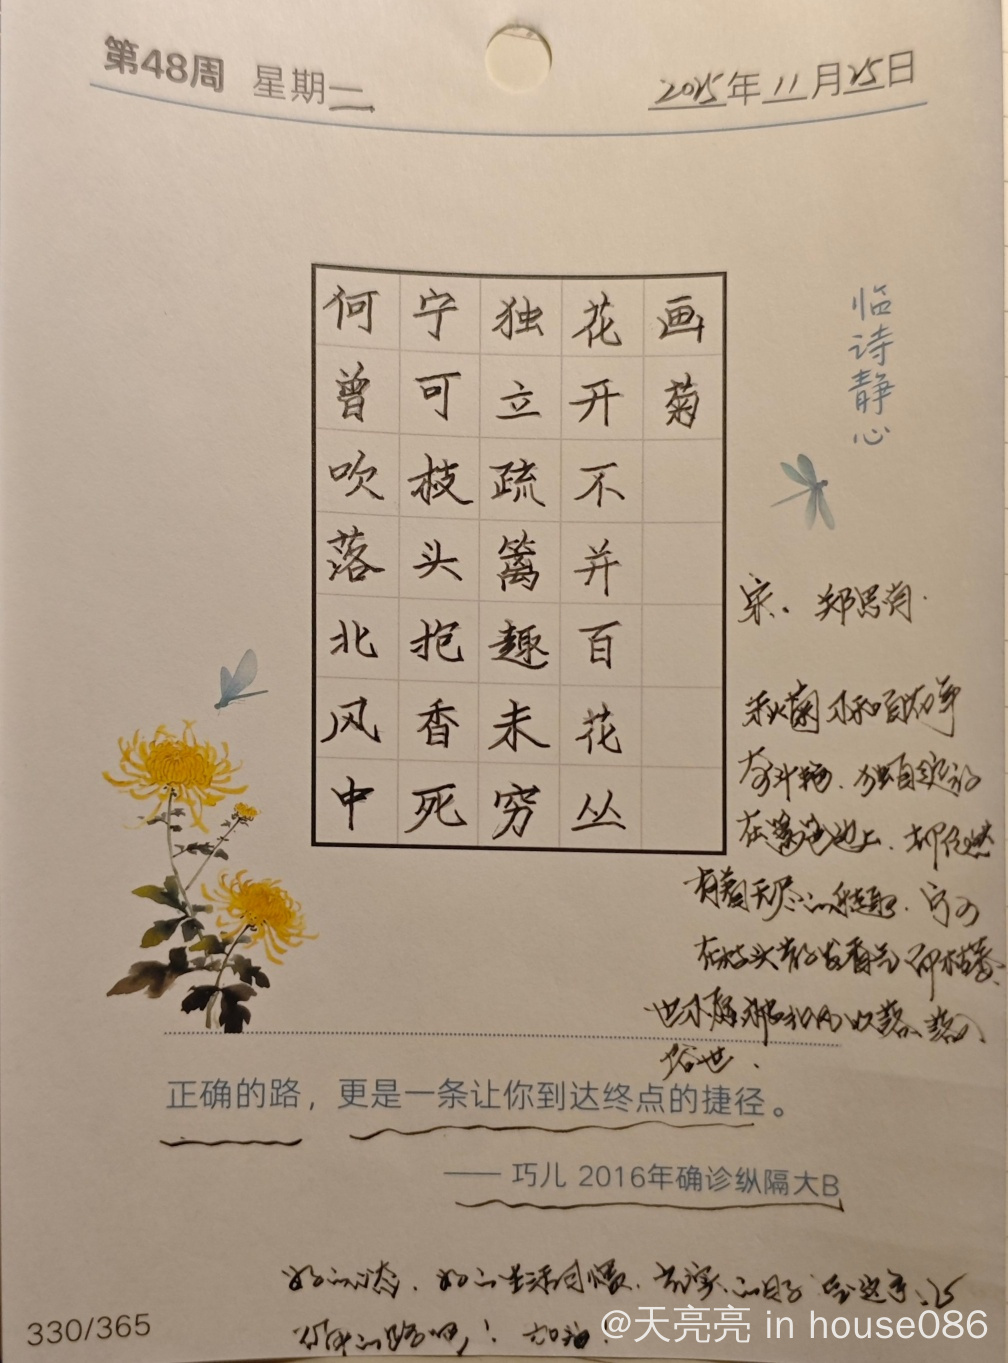 第48周 星期一
2025年11月25日
临诗静心
画菊
花开不并百花丛
独立疏篱趣未穷
宁可枝头抱香死
何曾吹落北风中
宋．郑思肖．
秋菊不和百花争
奇斗艳．独自绽放
在篱笆边上．却依然
有着无尽的趣．宁可
在枝头散发香气而枯萎．
也不愿被北风吹落、落入
俗世．
正确的路，更是一条让你到达终点的捷径。
—— 巧儿 2016年确诊纵隔大B
好的心态．好的生活习惯．
的路吧！加油！
330/365
@天亮亮 in house086